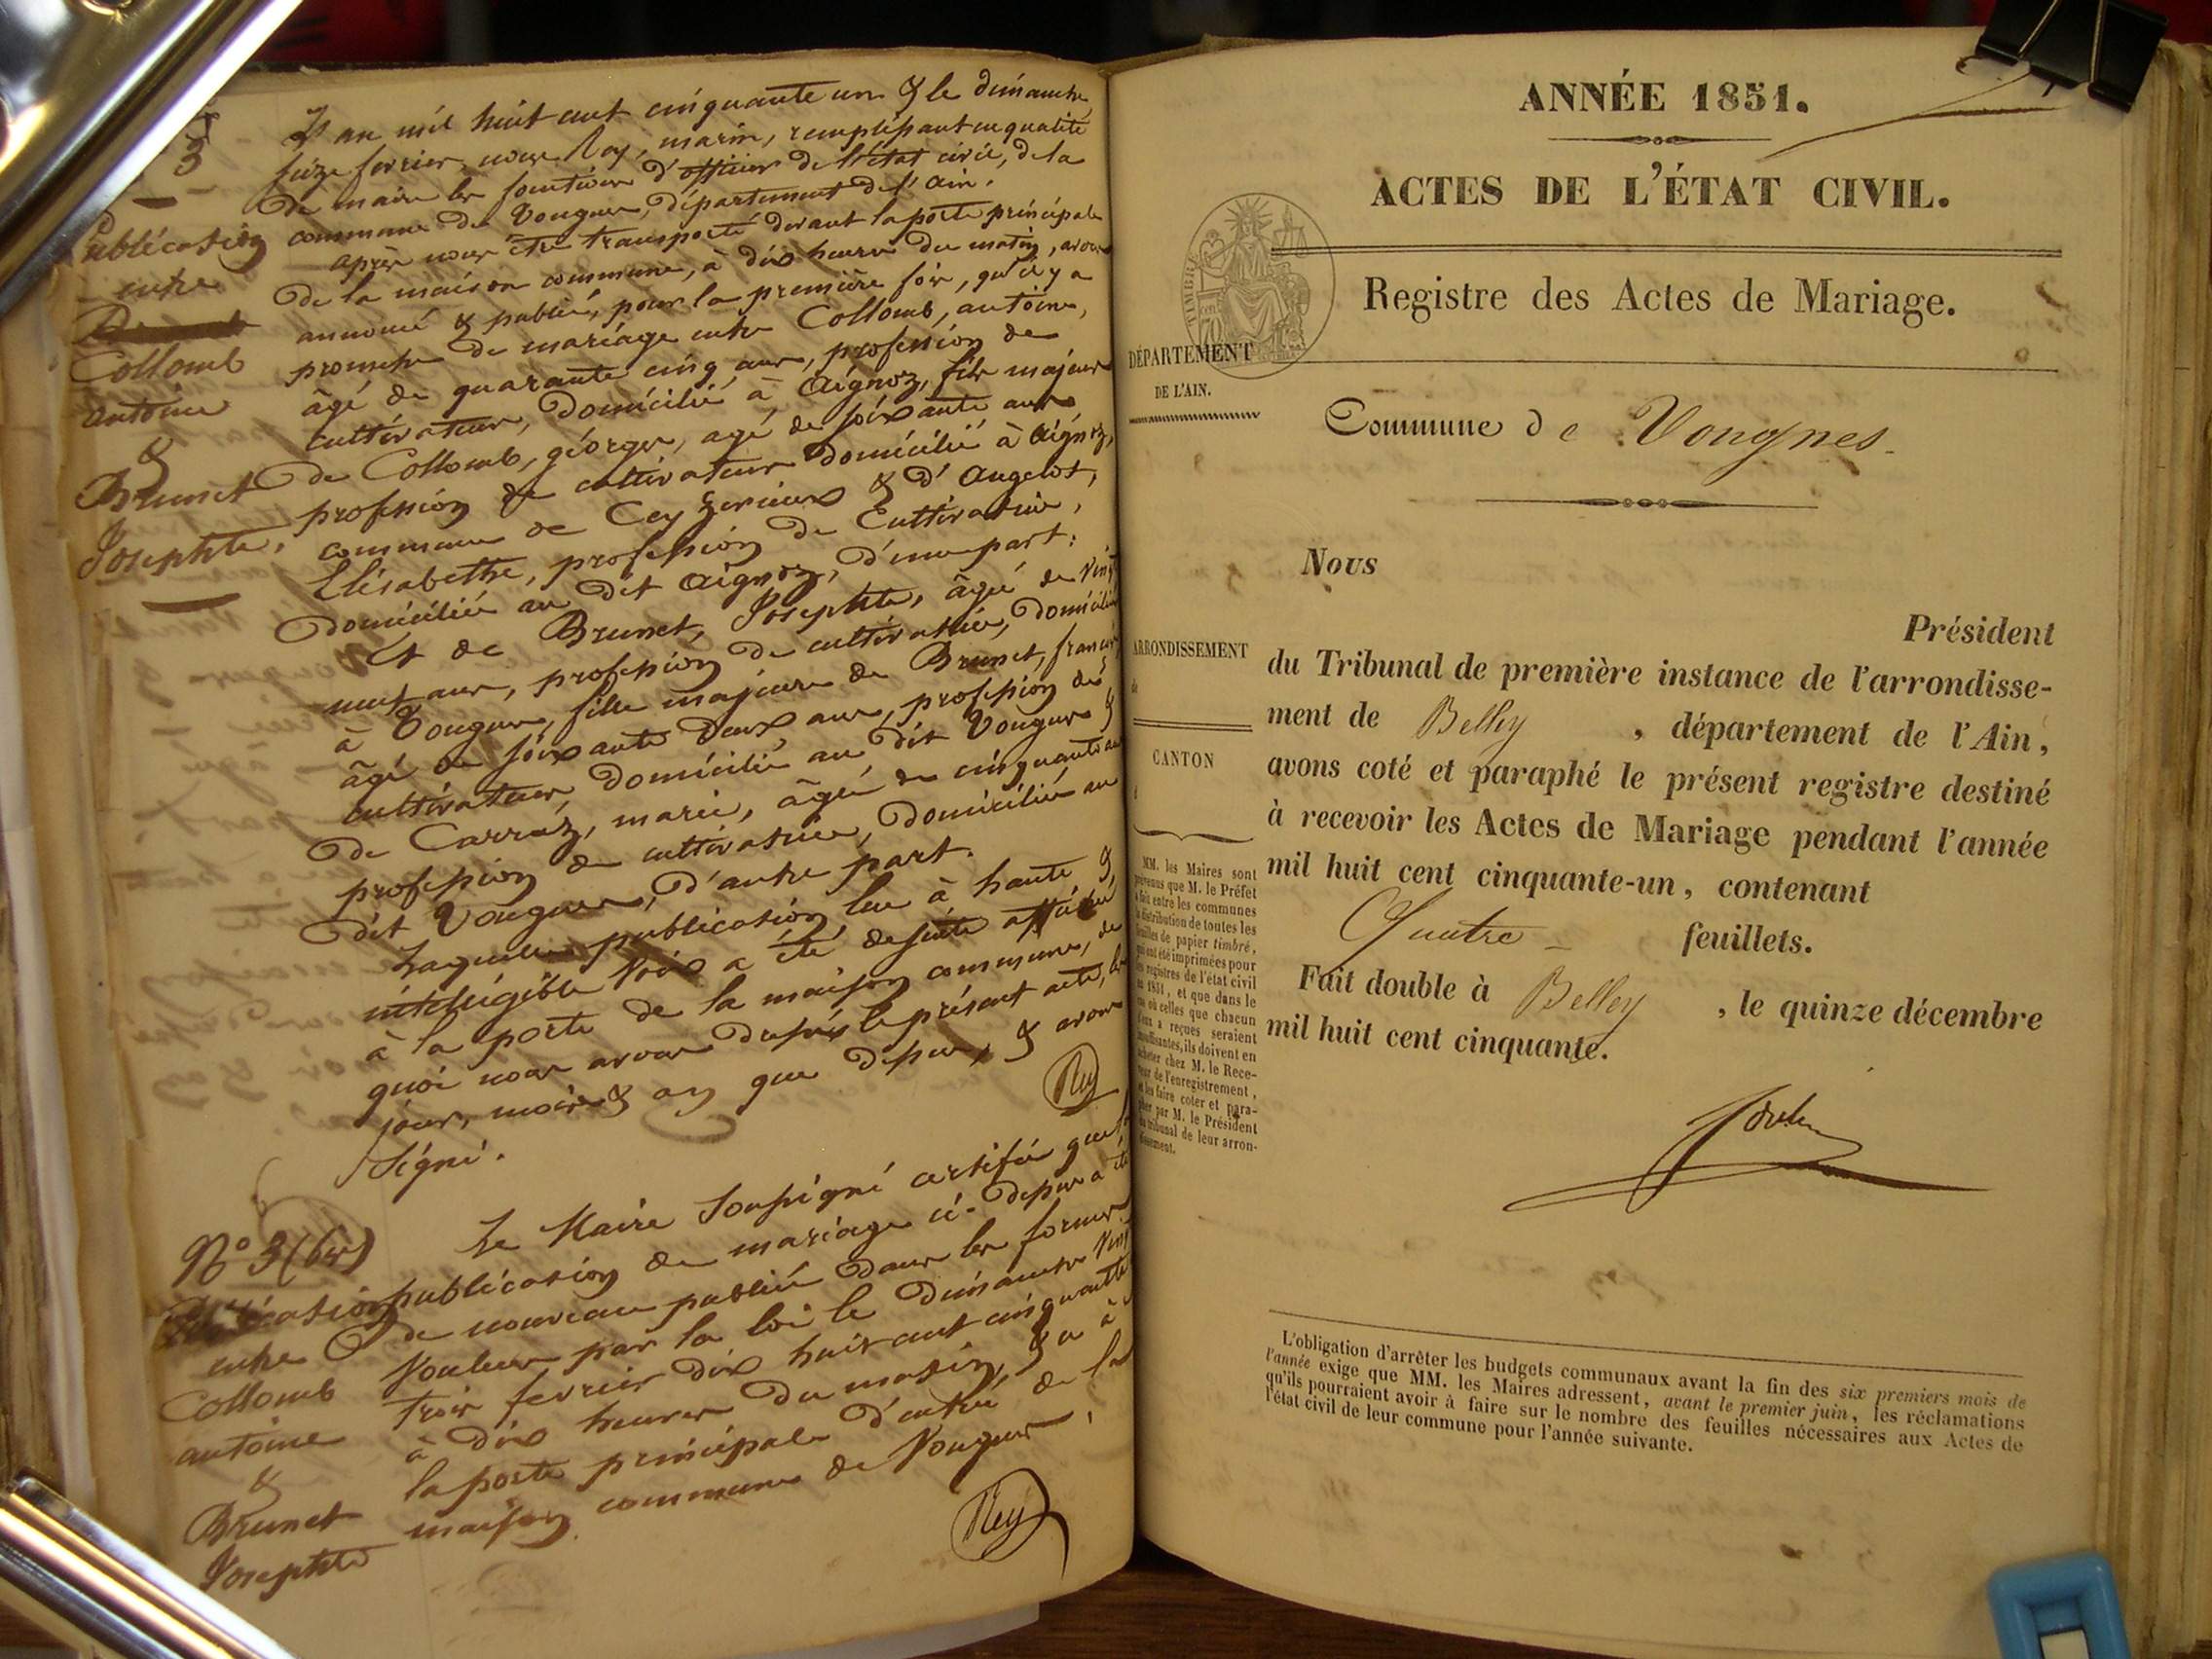 3
Publication
entre
Collomb
antoine
&
Brunet
Josephte.
L'an mil huit cent cinquante un & le dimanche
seize fevrier, nous Rey, marin, remplissant en qualité
de maire les fonctions d'officier de l'état civil, de la
commune de Vongnes, département de l'ain.
après nous être transporté devant la porte principale
de la maison commune, à dix heures du matin, avons
annoncé & publié, pour la première fois, qu'il y a
promesse de mariage entre Collomb, antoine,
âgé de quarante cinq ans, profession de
cultivateur, domicilié à Aignoz, fils majeur
de Collomb, géorges, agé de soixante ans
profession de cultivateur domicilié à Aignoz,
commune de Ceyzerieux & d'Angelot,
Elisabethe, profession de Cultivatrice,
domiciliée au dit Aignoz, d'une part:
Et de Brunet, Josephte, âgée de vingt
neuf ans, profession de cultivatrice, domiciliée
à Vongnes, fille majeure de Brunet, françois
âgé de soixante deux ans, profession de
cultivateur, domicilié au dit Vongnes &
de Carraz, marie, âgée de cinquante
profession de cultivatrice, domiciliée au
dit Vongnes, d'autre part.
Laquelle publication, lue à haute &
intelligible voix a été de suite affiché
à la porte de la maison commune, de
quoi nous avons dressé le présent acte, les
jour, mois & an que dessus, & avons
signé.
Rey
N° 3 (bis)
Publication
entre
Collomb
antoine
&
Brunet
Josephte
Le Maire soussigné certifie que la
publication de mariage ci-dessus a été
de nouveau publiée dans les formes
voulues par la loi le dimanche vingt
trois fevrier dix huit cent cinquante
à dix heures du matin, & à
la porte principale d'entrée de la
maison commune de Vongnes.
Rey
ANNÉE 1851.
ACTES DE L'ÉTAT CIVIL.
Registre des Actes de Mariage.
DÉPARTEMENT
DE L'AIN.
Commune de Vongnes.
Nous
Président
ARRONDISSEMENT
du Tribunal de première instance de l'arrondisse-
ment de Belley, département de l'Ain,
CANTON
avons coté et paraphé le présent registre destiné
à recevoir les Actes de Mariage pendant l'année
mil huit cent cinquante-un, contenant
Quatre feuillets.
Fait double à Belley, le quinze décembre
mil huit cent cinquante.
MM. les Maires sont
prévenus que M. le Préfet
a fait entre les communes
la distribution de toutes les
feuilles de papier timbré,
qui ont été imprimées pour
les registres de l'état civil
en 1851, et que dans le
cas où celles que chacun
d'eux a reçues seraient
insuffisantes, ils doivent en
acheter chez M. le Rece-
veur de l'enregistrement,
et les faire coter et para-
pher par M. le Président
du tribunal de leur arron-
dissement.
L'obligation d'arrêter les budgets communaux avant la fin des six premiers mois de
l'année exige que MM. les Maires adressent, avant le premier juin, les réclamations
qu'ils pourraient avoir à faire sur le nombre des feuilles nécessaires aux Actes de
l'état civil de leur commune pour l'année suivante.